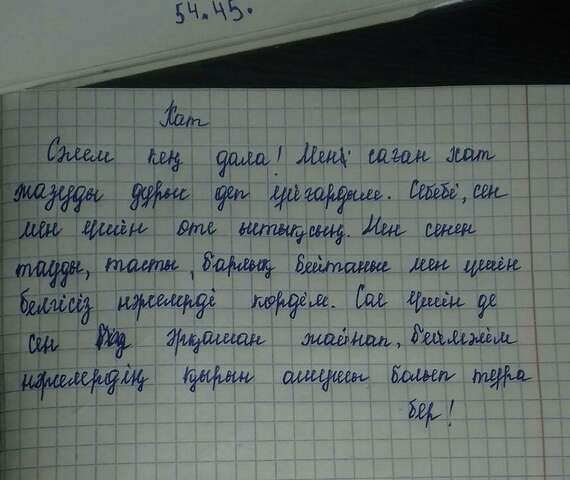 54.45.
Хат
Сәлем кең дала! Мені саған хат
жазуды дұрыс деп ұйғардым. Себебі, сен
мен үшін өте ыстықсың. Мен сенен
тауды, тасты, барлық бейтаныс мен үшін
белгісіз нәрселерді көрдім. Сол үшін де
сен әрқашан жайнап, беймәлім
нәрселердің қырын ашушы болып тұра
бер!